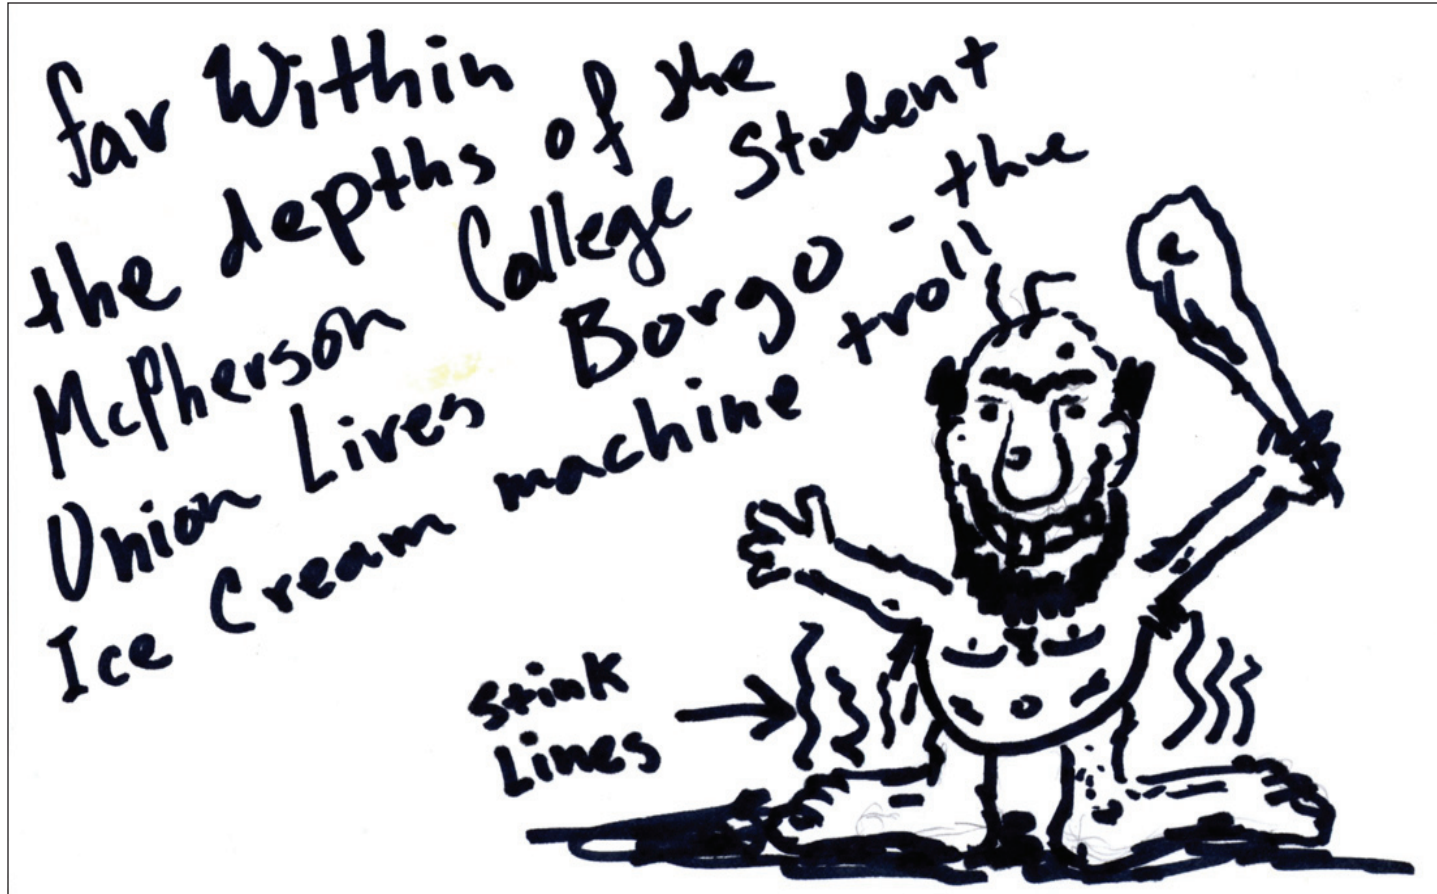 far Within
the depths of the
McPherson College Student
Union Lives Borgo - the
Ice Cream machine troll
Stink
Lines